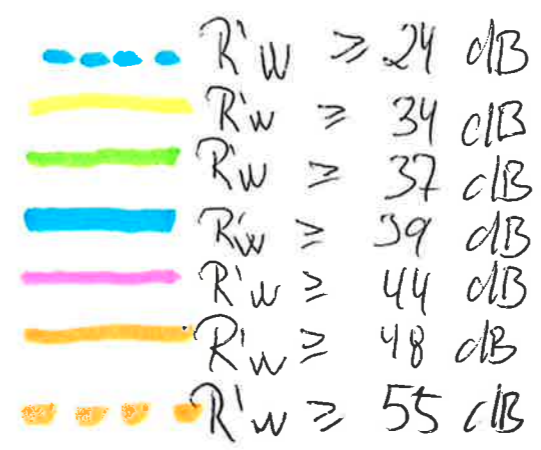 R'w ≥ 24 dB
R'w ≥ 34 dB
R'w ≥ 37 dB
R'w ≥ 39 dB
R'w ≥ 44 dB
R'w ≥ 48 dB
R'w ≥ 55 dB